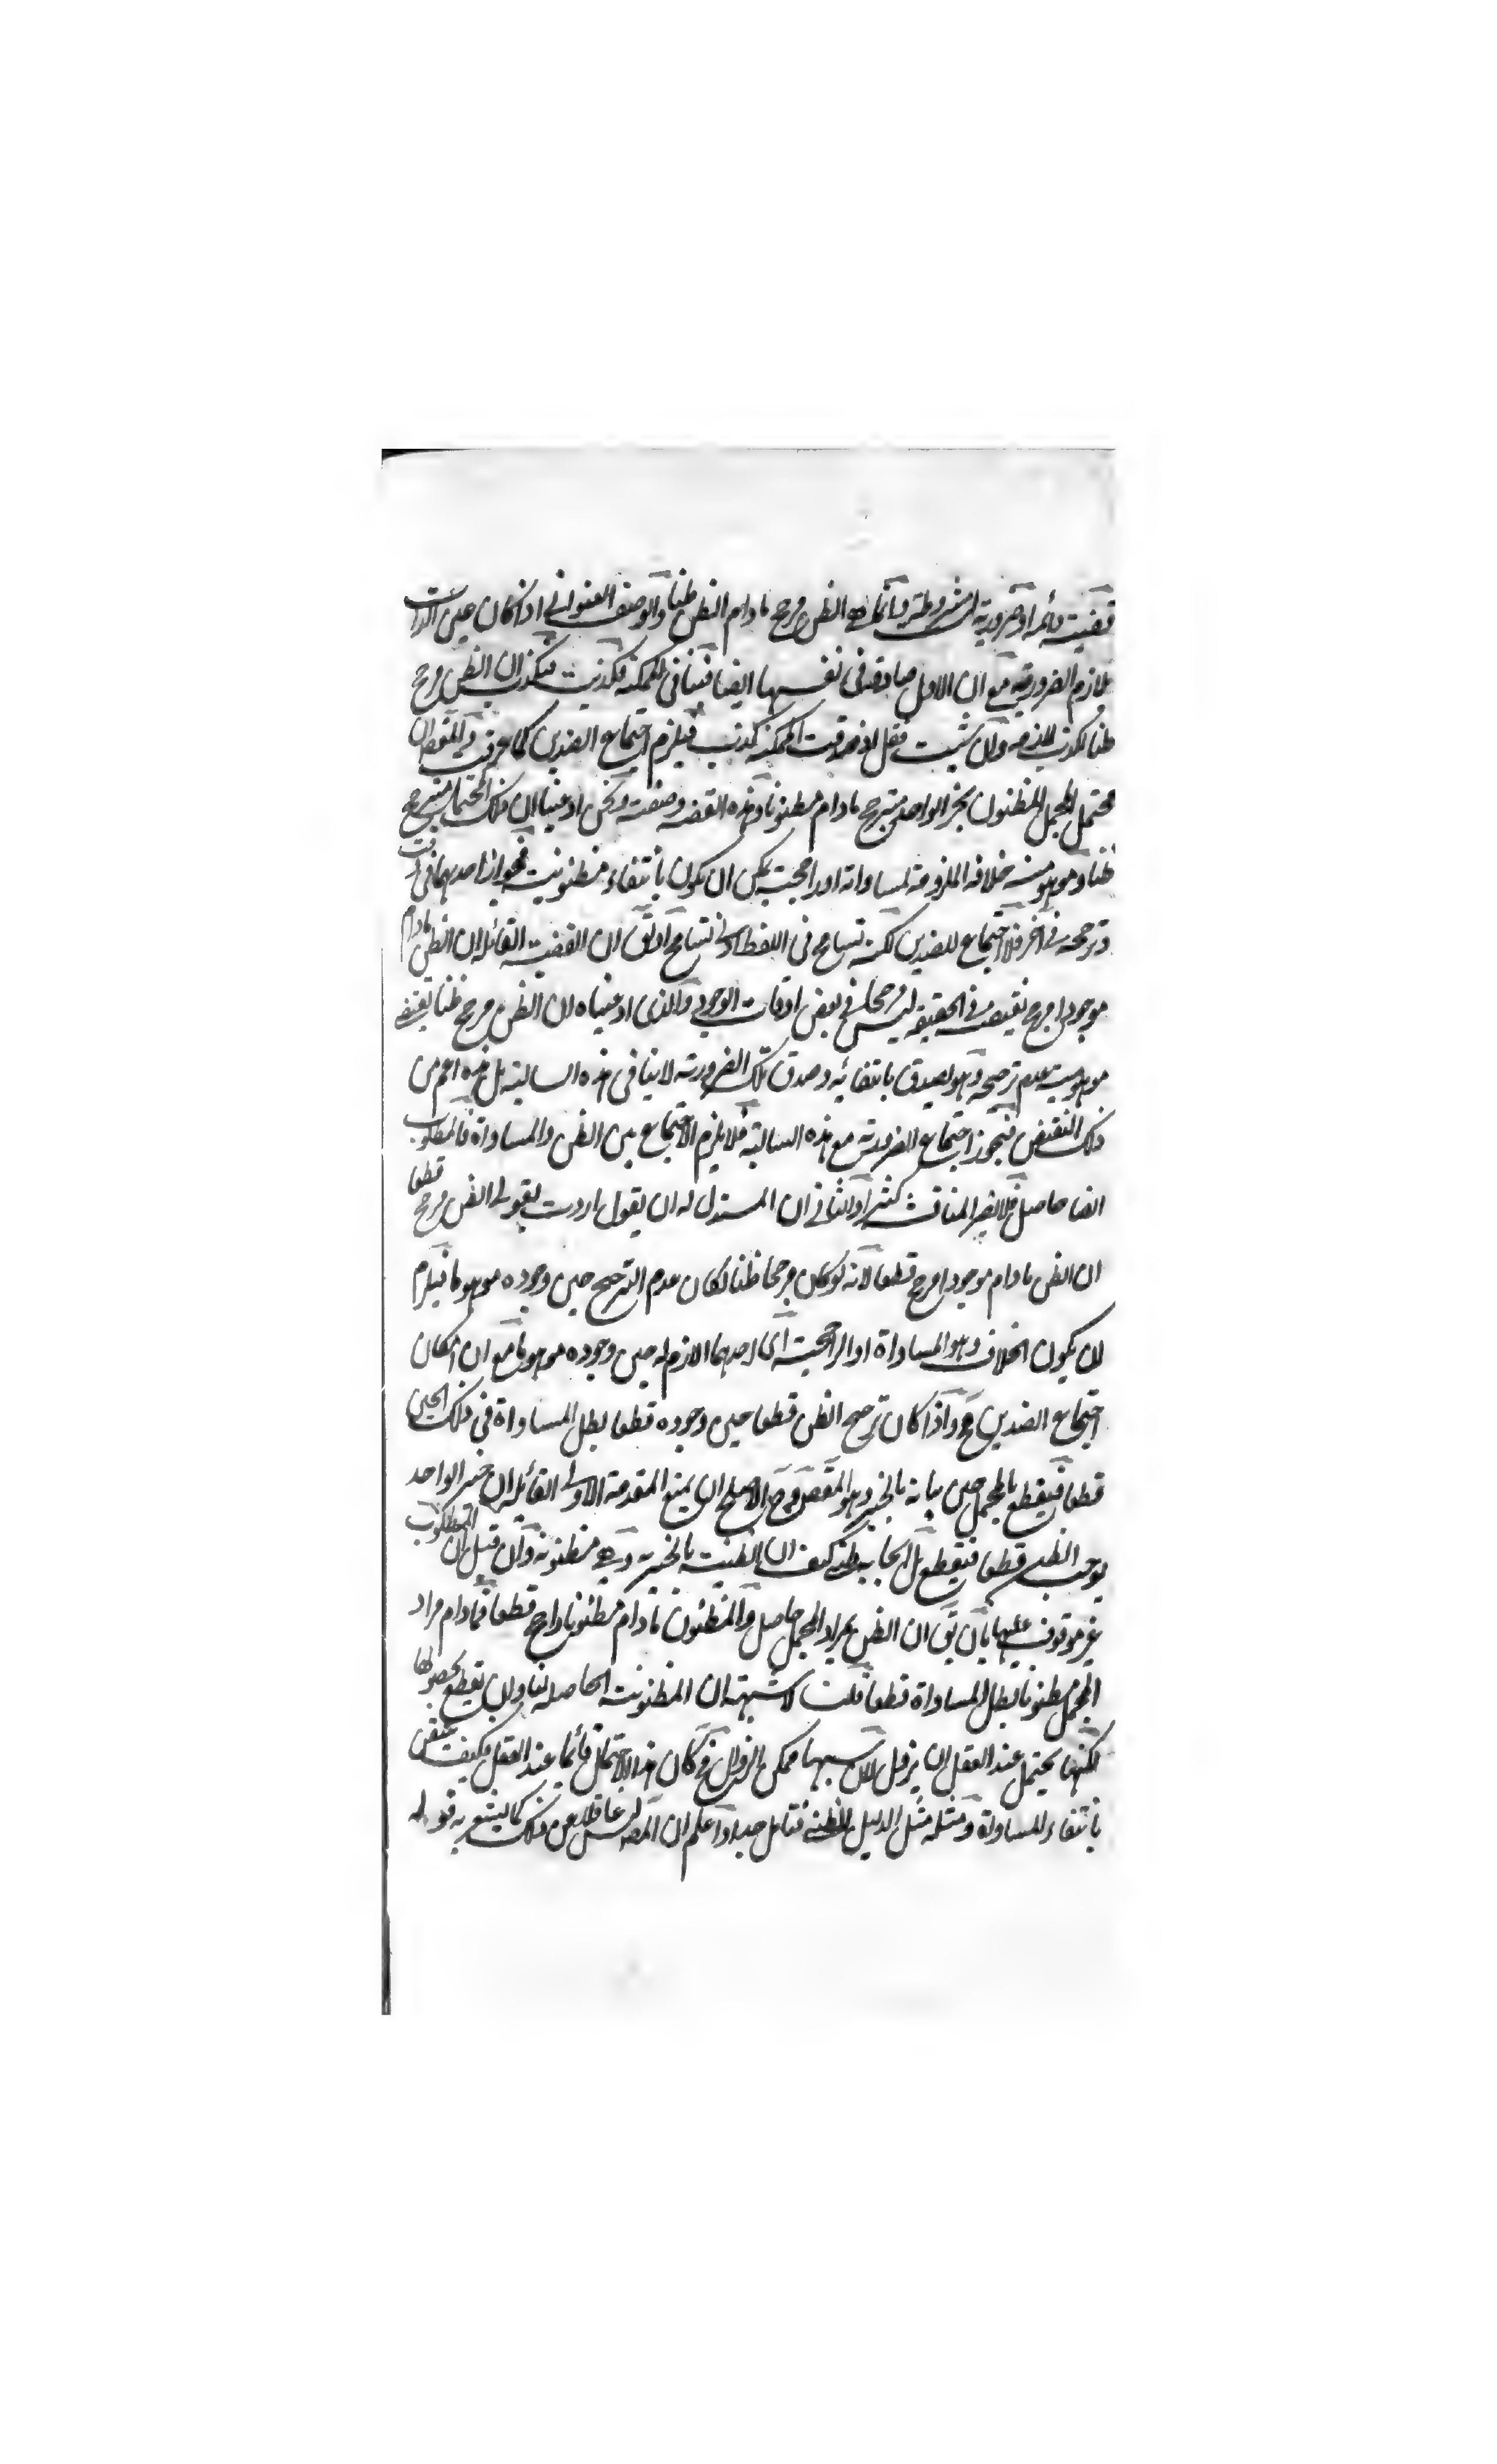 قضية دائمة او ضرورية لمشروطة وبانما هي الظن مرجح مادام الظن ظنا والوصف العنواني اذا كان عين الذات
تلازم الضرورية مع ان الاول صادقة في نفسها ايضا فتنافي الممكنة فكذبت فتكذب ان الظن مرجح
ظنا لكذب لازمه وان شئت فقل اذ صدقت الممكنة كذبت فيلزم اجتماع الضدين كما عرفت
محتمل المجمل المظنون بخبر الواحد مترجح مادام مظنونا وهذه القضية وصفية ونحن ادعينا ان ذلك المحتمل مترجح
ظنا وموهومية خلافه الملزومة لمساواته او راجحيته يمكن ان يكون بانتفاء مظنونيته فيجوز احدهما في وقت
وترجحه في آخر فلا اجتماع للضدين لكنه تسامح في اللفظ ان القضية القائلة ان الظن مادام
موجودا مرجح نقيضه في الحقيقة ليس مرجحا في بعض اوقات الوجود والذي ادعيناه ان الظن مرجح ظنا يقتضي
موهومية عدم ترجحه وهو يصدق بانتفائه وصدق تلك الضرورية لا ينافي هذه السالبة بل هذه اعم من
ذلك النقيض فيجوز اجتماع الضرورية مع هذه السالبة فلا يلزم الاجتماع بين الظن والمساواة فالمطلوب
ايضا حاصل فلا يضر المناقشة كثيرا والثاني ان المستدل له ان يقول اردت بقولي الظن مرجح قطعا
ان الظن مادام موجودا مرجح قطعا لانه لو كان مرجحا ظنا لكان عدم الترجيح حين وجوده موهوما فيلزم
ان يكون الخلاف وهو المساواة او الراجحية اي احدهما اللازم له حين وجوده موهوما مع ان امكان
اجتماع الضدين مح واذا كان ترجح الظن قطعا حين وجوده قطعا بطل المساواة في ذلك الحين
قطعا فيقطع بالمجمل حين بيانه بالخبر وهو المقص وح الاصلح ان يمنع المقدمة الاولى القائلة ان خبر الواحد
يوجب الظن قطعا فيقطع بل ايجابه ظني كيف ان الظنية بالخبرية وهي مظنونة وان قيل ان المطلوب
غير موقوف عليها بان يق ان الظن بمراد المجمل حاصل والمظنون مادام مظنونا راجح قطعا فمادام مراد
المجمل مظنونا بطل المساواة قطعا قلت لا شبهة ان المظنونية الحاصلة لنا وان يقطع بحصولها
لكنها يحتمل عند العقل ان يزول لان سببها ممكن الزوال فح كان هذا الاحتمال قائما عند العقل فكيف يتيقن
بانتفاء المساواة ومثله مثل الدليل الظني فتامل جدا واعلم ان المصـ ليس غافلا عن ذلك كما يشعر به قوله